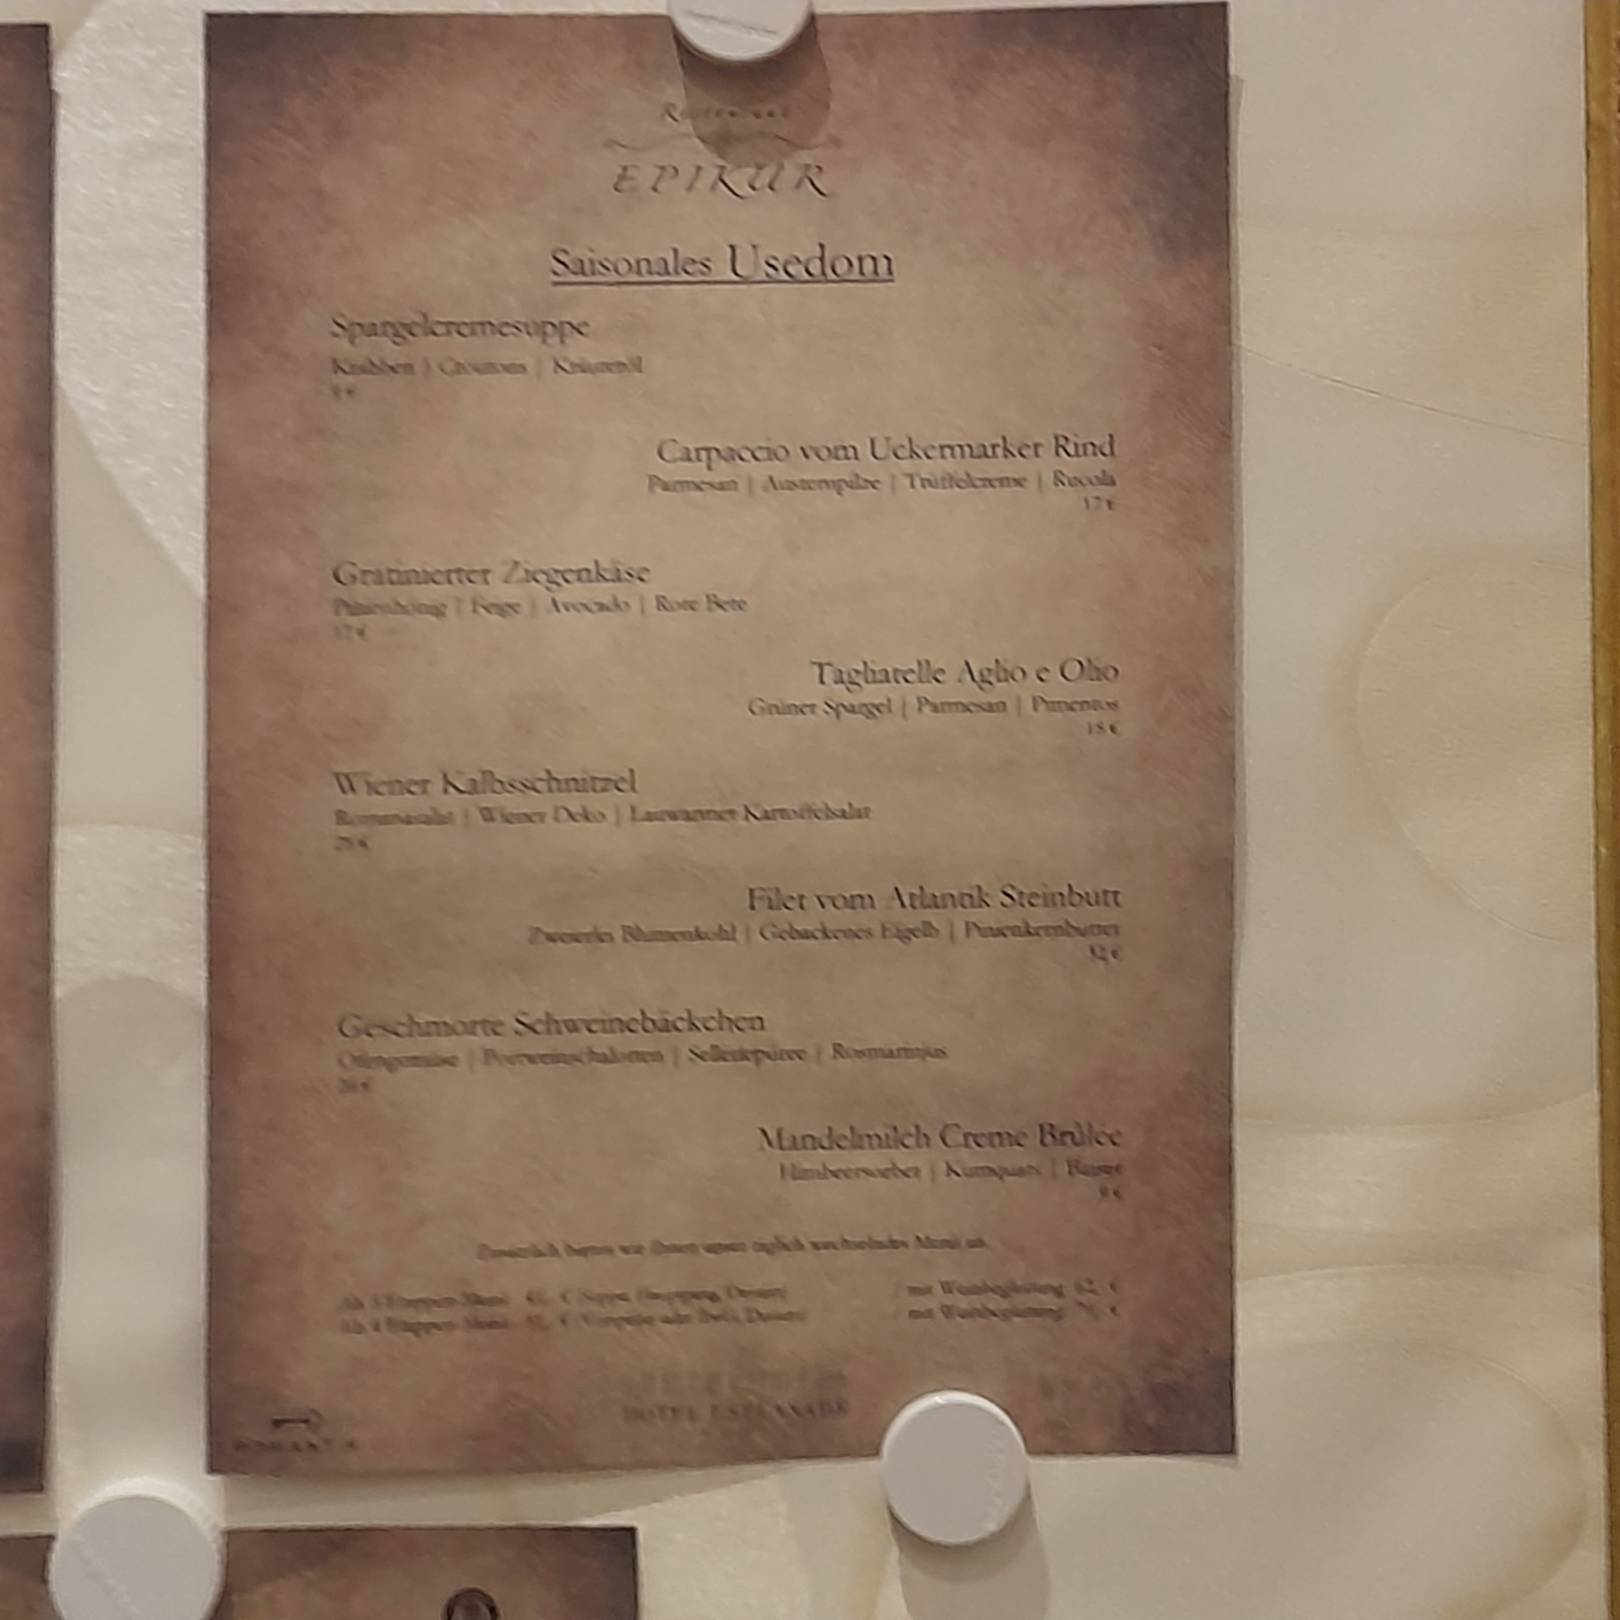 Restaurant
EPIKUR
Saisonales Usedom
Spargelcremesuppe
Krabben | Croutons | Kräuteröl
9 €
Carpaccio vom Uckermarker Rind
Parmesan | Austernpilze | Trüffelcreme | Rucola
17 €
Gratinierter Ziegenkäse
Pinienhonig | Feige | Avocado | Rote Bete
17 €
Tagliatelle Aglio e Olio
Grüner Spargel | Parmesan | Pimentos
18 €
Wiener Kalbsschnitzel
Romanasalat | Wiener Deko | Lauwarmer Kartoffelsalat
Filet vom Atlantik Steinbutt
Zweierlei Blumenkohl | Gebackenes Eigelb | Pinienkernbutter
Geschmorte Schweinebäckchen
Ofengemüse | Portweinschalotten | Selleriepüree | Rosmarinjus
Mandelmilch Creme Brûlée
Himbeersorbet | Kumquats |
9 €
Zusätzlich bieten wir Ihnen unser täglich wechselndes Menü an
mit Weinbegleitung
mit Weinbegleitung
HOTEL ESPLANADE
ROMANTIK